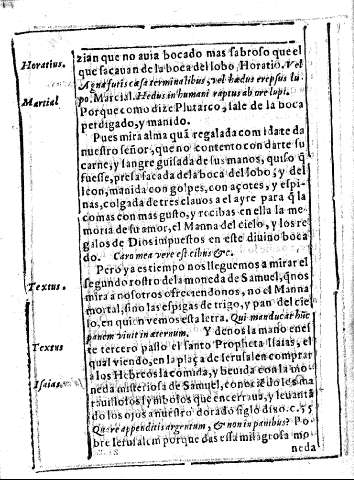 Horatius.
zian que no auia bocado mas sabroso que el
que sacauan de la boca del lobo, Horatio. Vel
Agna festis cæsa terminalibus, vel hædus ereptus lu-
Martial
po. Marcial. Hedus inhumani raptus ab ore lupi.
Porque como dize Plutarco, sale de la boca
perdigado, y manido.
Pues mira alma quã regalada comida te da
nuestro señor, que no contento con darte su
carne, y sangre guisada de sus manos, quiso q̃
fuesse, presa sacada de la boca del lobo; y del
leon, manida con golpes, con açotes, y espi-
nas, colgada de tres clauos a el ayre para q̃ la
comas con mas gusto, y recibas en ella la me-
moria de su amor, el Manna del cielo, y los re
galos de Dios impuestos en este diuino boca
do. Caro mea vere est cibus &c.
Pero ya es tiempo nos lleguemos a mirar el
Textus.
segundo rostro de la moneda de Samuel, q̃ nos
mira a nosotros ofreciendonos, no el Manna
mortal, sino las espigas de trigo, y pan del cie
lo, en quien vemos esta letra, Qui manducat hũc
panem viuit in æternum. Y denos la mano en el
Textus
te tercero passo el santo Propheta Isaias, el
qual viendo, en la plaça de Ierusalen comprar
a los Hebreos la comida, y beuida con la mo
Isaias.
neda misteriosa de Samuel, conociẽdo los ma
rauillosos symbolos que encerraua, y leuantã
do los ojos a nuestro dorado siglo dixo. c. 55
Quare appenditis argentum, & non in panibus? Po-
bre Ierusalem porque das essa milagrosa mo
neda